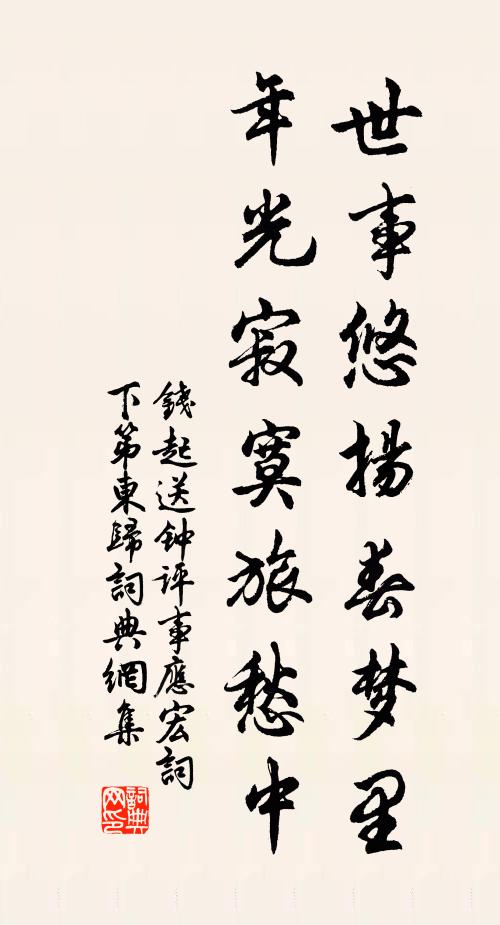 世事悠揚春梦里
年光寂寞旅愁中
錢起送钟评事應宏詞
下第東歸詞典網集
詞典
网印